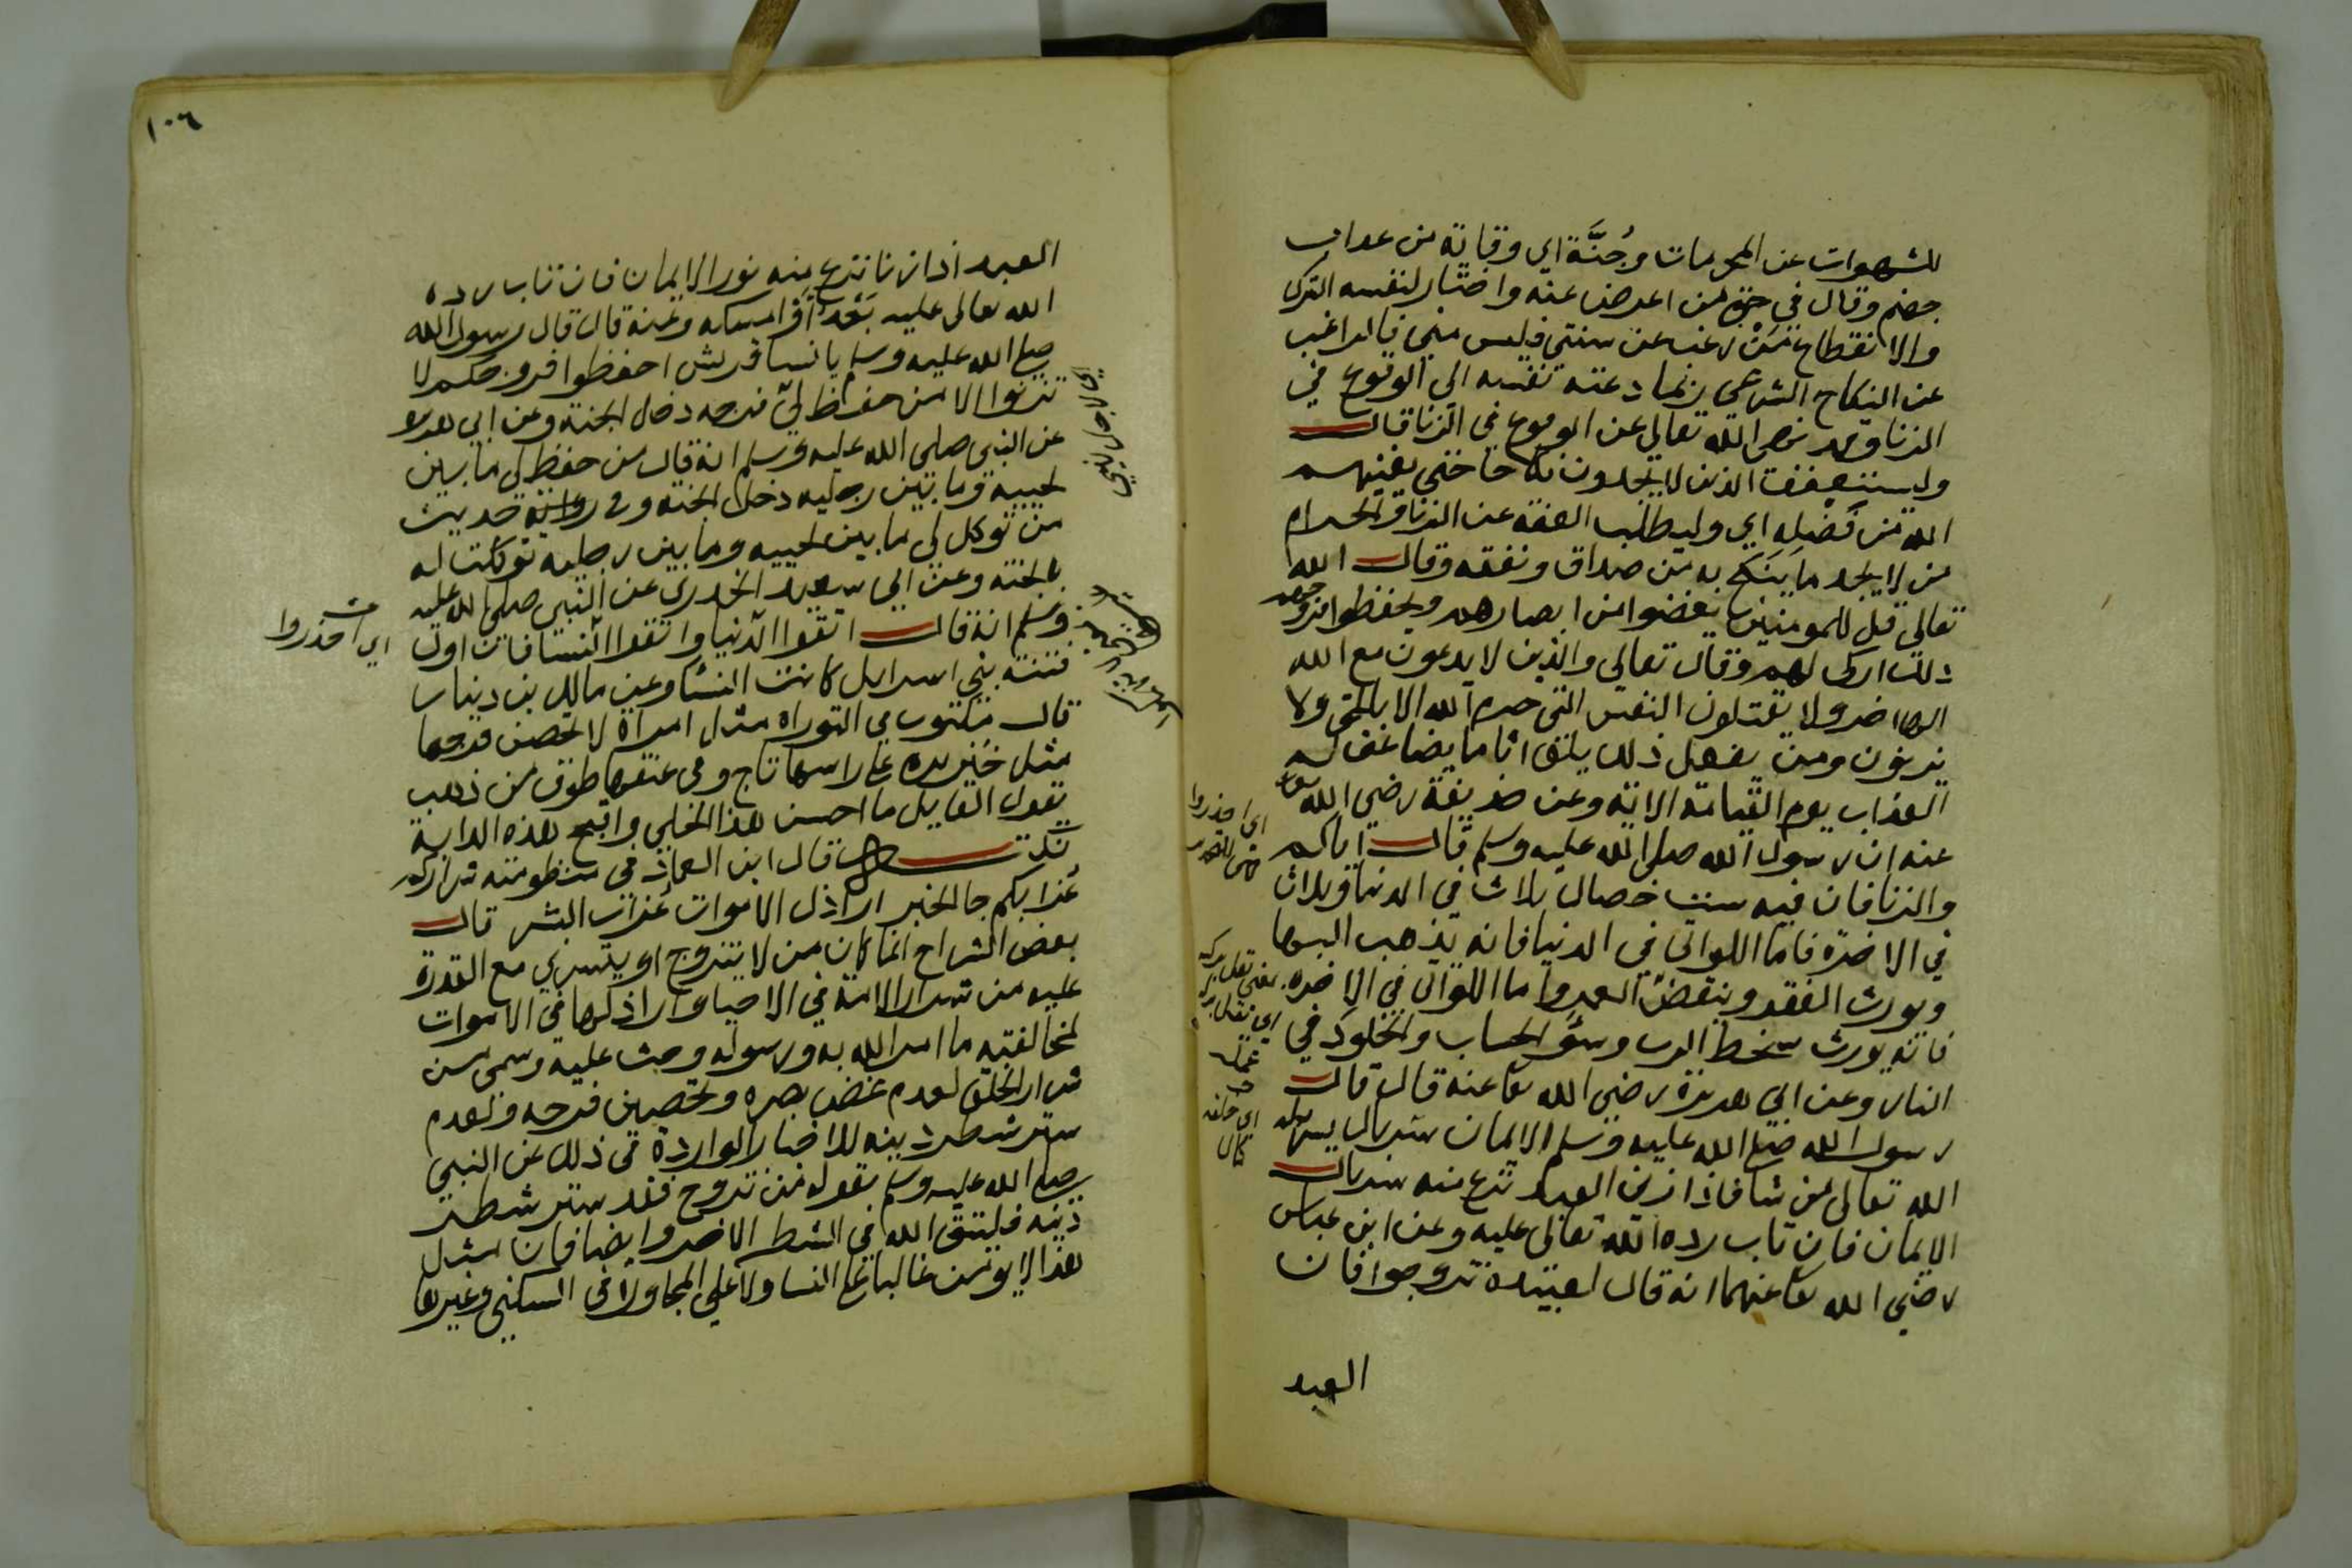 للشهوات عن المحرمات وجُنَّة اي وقاية من عداب
جهنم وقال في حق من اعرض عنه واختار لنفسه الترك
والانقطاع مَنْ رغب عن سنتي فليس مني فالراغب
عن النكاح الشرعي ربما دعته نفسه الى الوقوع في
الزنا وقد نهى الله تعالى عن الوقوع في الزنا قال
وليستعفف الذين لا يجدون نكاحا حتى يغنيهم
الله من فضله اي وليطلب العفة عن الزنا والحرام
من لا يجد ما ينكح به من صداق ونفقه وقال الله
تعالى قل للمومنين يغضوا من ابصارهم ويحفظوا فروجهم
ذلك ازكى لهم وقال تعالى والذين لا يدعون مع الله
الها اخر ولا يقتلون النفس التى حرم الله الا بالحق ولا
يزنون ومن يفعل ذلك يلق اثاما يضاعف له
العذاب يوم القيامة الاية وعن حذيفة رضي الله تعا
عنه ان رسول الله صلى الله عليه وسلم قال اياكم
والزنا فان فيه ست خصال ثلاث في الدنيا وثلاث
في الاخرة فاما اللواتى في الدنيا فانه يذهب البها
ويورث الفقر وينقص العمر واما اللواتى في الاخره
فانه يورث سخط الرب وسوَ الحساب والخلود في
النار وعن ابي هريرة رضي الله تعا عنه قال قال
رسول الله صلى الله عليه وسلم الايمان سربال يسربله
الله تعالى من شا فاذا زنى العبد نزع منه سربال
الايمان فان تاب رده الله تعالى عليه وعن ابن عباس
رضي الله تعا عنهما انه قال لعبيده تزوجوا فان
العبد
اي احذروا
١٠٦
العبد اذا زنا نزع منه نور الايمان فان تاب رده
الله تعالى عليه بَعْدُ او امسكه وعنه قال قال رسول الله
صلى الله عليه وسلم يا نسا قريش احفظوا فروجكم لا
تزنوا الا من حفظ لي فرجه دخل الجنة وعن ابي هريرة
عن النبى صلى الله عليه وسلم انه قال من حفظ لى ما بين
لحييه وما بين رجليه دخل الجنه وفى رواية حديث
من توكل لي ما بين لحييه وما بين رجليه توكلت له
بالجنه وعن ابي سعيد الخدري عن النبى صلى الله عليه
وسلم انه قال اتقوا الدنيا واتقوا النسا فان اول
فتنة بني اسرايل كانت النسا وعن مالك بن دينار
قال مكتوب في التوراه مثل امراة لا تحصن فرجها
مثل خنزيره على راسها تاج وفى عنقها طوق من ذهب
يقول القايل ما احسن هذا الحلي واقبح هذه الدابة
نكتة قال ابن العماد فى منظومته شراركم
عُزابكم جا الخبر اراذل الاموات عُزاب البشر قال
بعض الشراح انما كان من لا يتزوج او يتسري مع القدرة
عليه من شرار الامة في الاحيا واراذلها في الاموات
لمخالفته ما امر الله به ورسوله وحث عليه وسمى من
شرار الخلق لعدم غض بصره وتحصين فرجه ولعدم
ستر شطر دينه للاخبار الواردة فى ذلك عن النبي
صلى الله عليه وسلم بقوله من تزوج فقد ستر شطر
دينه فليتق الله في الشطر الاخر وايضا فان مثل
هذا لا يوتمن غالبا على النسا ولا على المجاورة فى السكنى وغيرها
اي احذروا